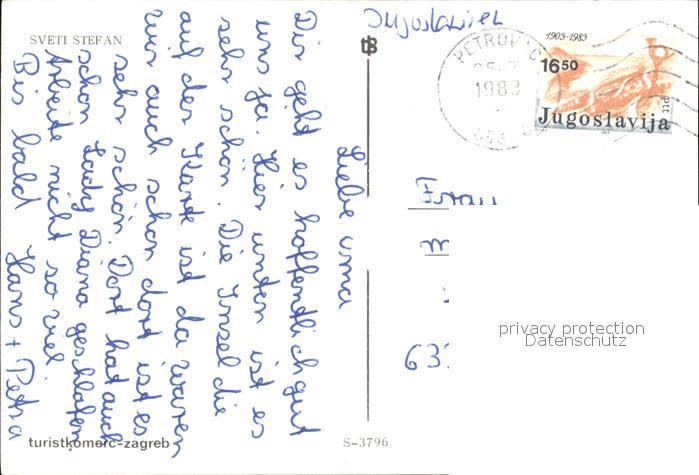 SVETI STEFAN
Jugoslawien
Liebe Oma
Dir geht es hoffentlich gut
uns ja. Hier unten ist es
sehr schön. Die Insel die
auf der Karte ist da waren
wir auch schon dort ist es
sehr schön. Dort hat auch
schon Lady Diana geschlafen
Arbeite nicht so viel.
Bis bald Hans + Petra
PETROVAC
1983
1903-1983
16 50
ptt
Jugoslavija
Frau
63
privacy protection
Datenschutz
turistkomerc-zagreb
S-3796